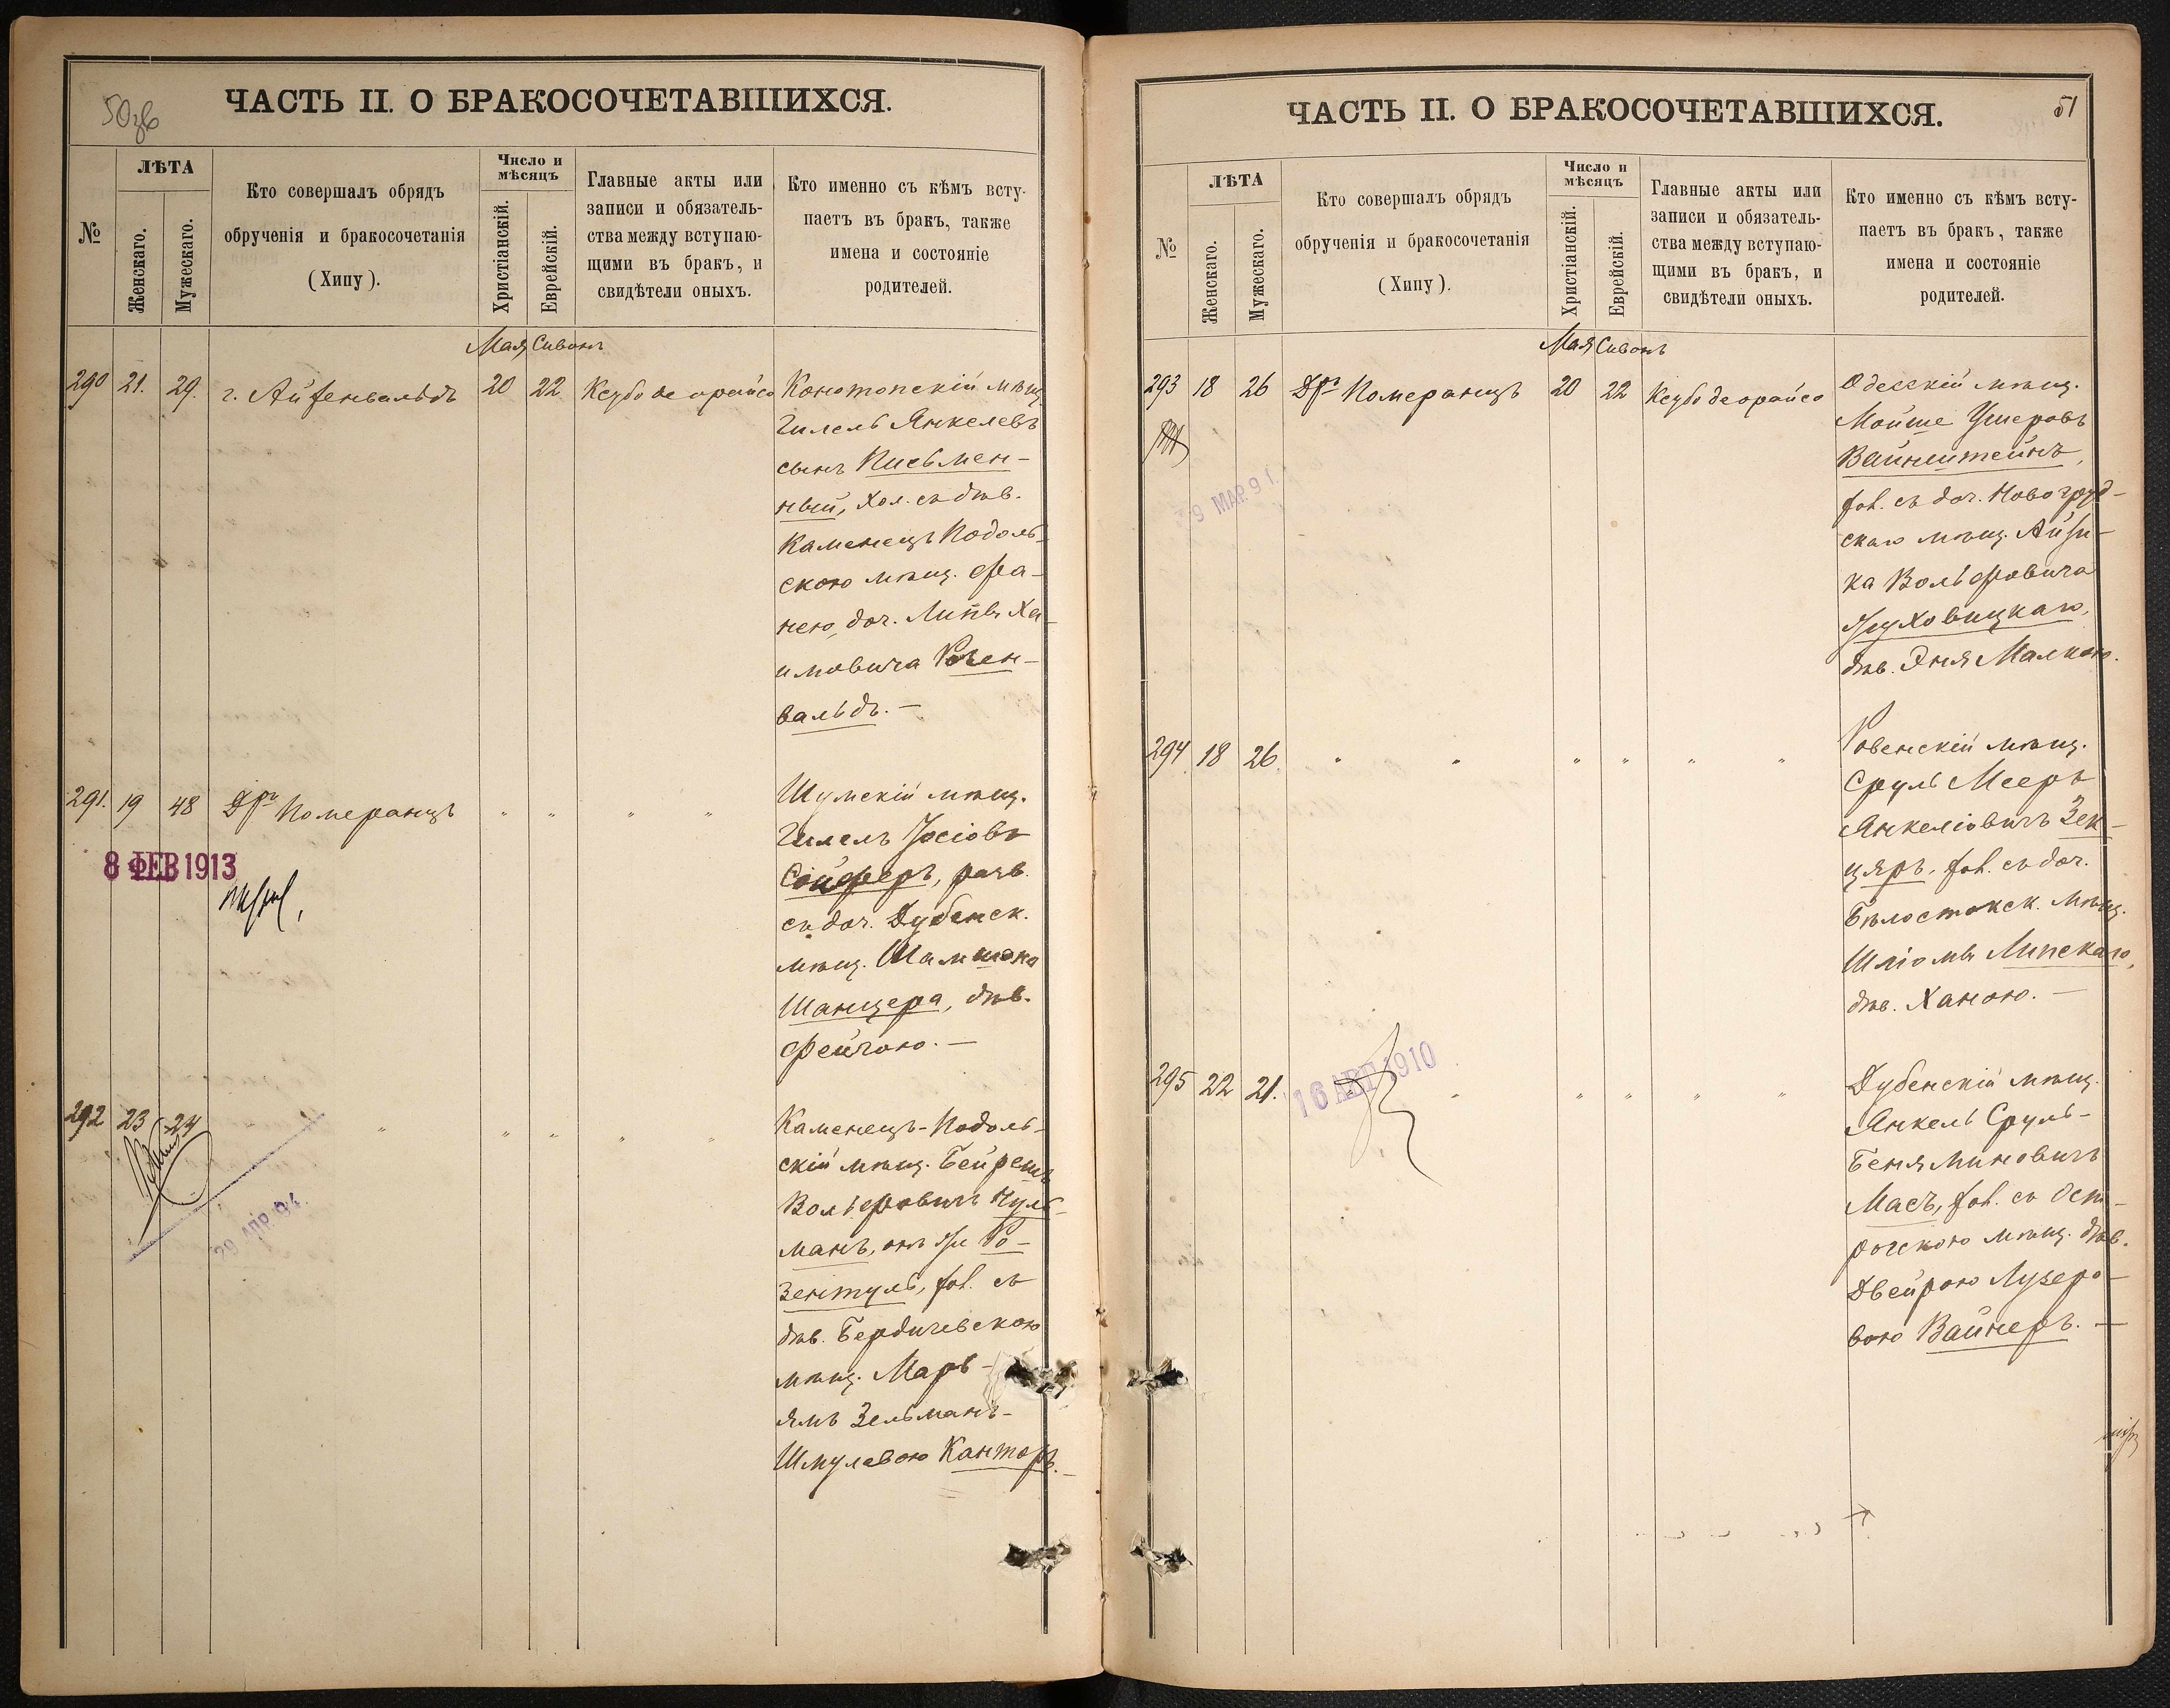 50 зв
ЧАСТЬ II. О БРАКОСОЧЕТАВШИХСЯ.
№
ЛѢТА
Женскаго.
Мужескаго.
Кто совершалъ обрядъ
обрученія и бракосочетанія
(Хипу).
Число и
мѣсяцъ
Христіанскій.
Еврейскій.
Главные акты или
записи и обязатель-
ства между вступаю-
щими въ бракъ, и
свидѣтели оныхъ.
Кто именно съ кѣмъ всту-
паетъ въ бракъ, также
имена и состояніе
родителей.
Мая Сивонъ
290 21. 29. г. Айзенвальдъ 20 22 Ксубо деорайсо Конотопскій мѣщ.
Гилель Янкелевъ
сынъ Письмен-
ный, хол. съ дѣв.
Каменецъ Подоль-
скою мѣщ. Фа-
нею, доч. Липы Ха-
имовича Розен-
вальдъ. —
291. 19 48 Дръ Померанцъ " " " " Шумскій мѣщ.
Гилель Іосіовъ
Сойферъ, разв.
съ доч. Дубенск.
мѣщ.
Шанцера, дѣв.
Фейгою. —
8 ФЕВ 1913
292 23 24 " " " " " Каменецъ-Подоль-
скій мѣщ. Бейрешъ
Вольфовичъ Нуль-
манъ, онъ же Ро-
зентуль, хол. съ
дѣв. Бердичевскою
мѣщ. Марь-
ямъ Зельманъ-
Шмулевою Канторъ. —
29 АПР. 94.
ЧАСТЬ II. О БРАКОСОЧЕТАВШИХСЯ.
51
№
ЛѢТА
Женскаго.
Мужескаго.
Кто совершалъ обрядъ
обрученія и бракосочетанія
(Хипу).
Число и
мѣсяцъ
Христіанскій.
Еврейскій.
Главные акты или
записи и обязатель-
ства между вступаю-
щими въ бракъ, и
свидѣтели оныхъ.
Кто именно съ кѣмъ всту-
паетъ въ бракъ, также
имена и состояніе
родителей.
Мая Сивонъ
293 18 26 Дръ Померанцъ 20 22 Ксубо деорайсо Одесскій мѣщ.
Мойше Ушеровъ
Вайнштейнъ,
хол. съ доч. Новогруд-
скаго мѣщ. Айзи-
ка Вольфовича
дѣв. Эня Малкою.
9 МАР. 9
294 18 26. " " " " " " Ровенскій мѣщ.
Сруль Мееръ
Янкеліовичъ Зек-
церъ, хол. съ доч.
Бѣлостокск. мѣщ.
Шліомы Липскаго,
дѣв. Ханою. —
295 22 21. " " " " " Дубенскій мѣщ.
Янкель Сруль-
Беняминовичъ
Масъ, хол. съ Ост-
рогскою мѣщ. дѣв.
Двейрою Лузеро-
вою Вайнеръ. —
16 АВГ 1910